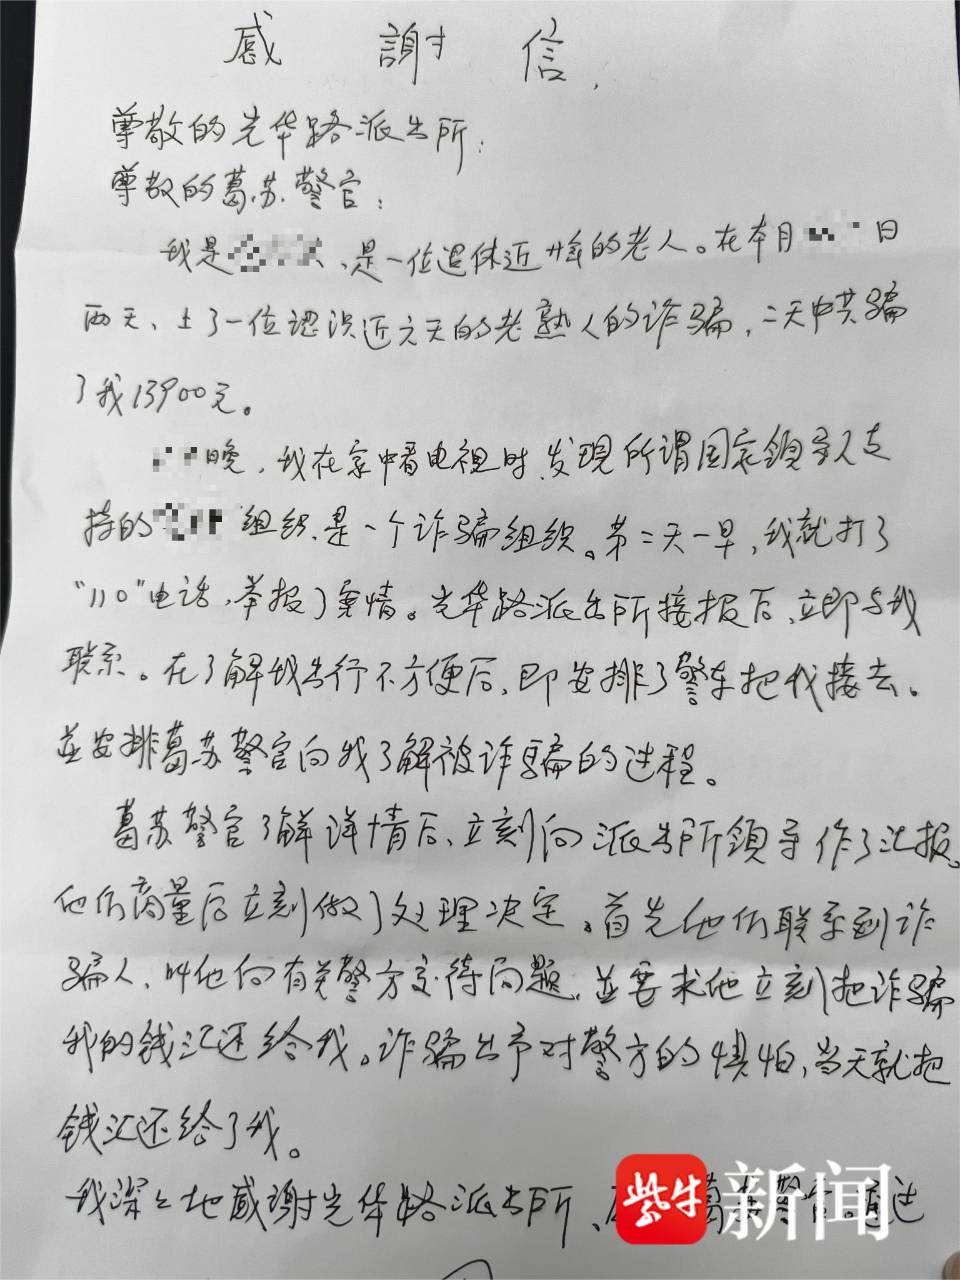 感謝信
尊敬的光华路派出所：
尊敬的葛苏警官：
我是 ，是一位退休近 年的老人。在本月 日
两天、上了一位認识近六天的老熟人的诈骗，二天中共骗
了我13900元。
晚，我在家中看电视时、发現所谓国家領导人支
持的 組织、是一个诈骗組织。第二天一早，我就打了
“110”电话，举报了案情。光华路派出所接报后、立即与我
联系。在了解我出行不方便后，即安排了警车把我接去。
並安排葛苏警官向我了解被诈骗的过程。
葛苏警官了解详情后、立刻向派出所領导作了汇报。
他们商量后立刻做了处理决定。首先他们联系到诈
骗人，叫他向有关警方交待问题，並要求他立刻把诈骗
我的钱汇还给我。诈骗出于对警方的惧怕，当天就把
钱汇还给了我。
我深々地感谢光华路派出所、 通过
紫牛新闻